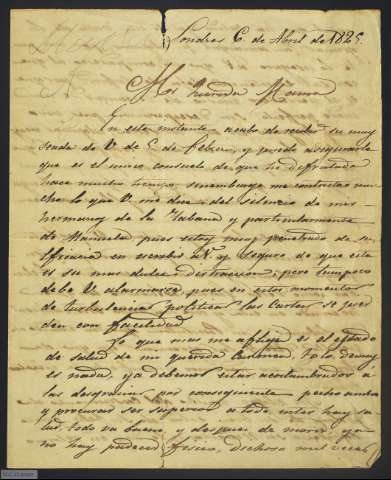 Londres 6. de Abril de 1825.
Mi Querida Mama
En este instante acabo de recibir su muy
ada de V. de 6 de Febro, y puedo asegurarla
que es el unico consuelo de que he disfrutado
hace mucho tiempo, sinembargo me contrista mu
cho lo que V. me dice del silencio de mis
hermanos de la Habana y particularmente
de Manuela, pues estoy muy penetrado de su
eficacia en escribir a V. y seguro de que esta
es su mas dulce distraccion; pero tampoco
debe V. alarmarse pues en estos momentos
de turbulencias politicas las Cartas se pier
den con facilidad
Lo que mas me aflige es el estado
de salud de mi querida todo lo demas
es nada, ya debemos estar acostumbrados á
las desgracias por consiguiente pecho ancho
y procurar ser superior a todo, entre hay sa
lud, todo va bueno, y despues de morir ya
no hay padecer fisico, dichoso mil veces